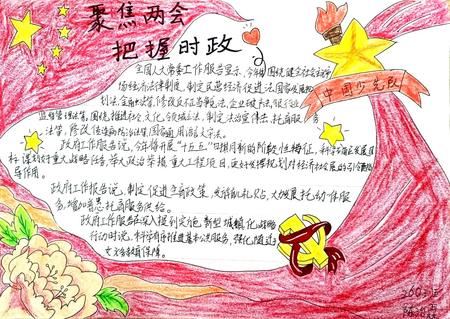 聚焦两会
把握时政
中国少先队
全国人大常委工作报告显示，今年将围绕健全社会主义
市场经济法律制度，制定民营经济促进法、国家发展规
划法、金融法等，修改反不正当竞争法、企业破产法、银行业
监督管理法等。围绕推进社会、文化领域立法，制定法治宣传法、托育服务
法等，修改传染病防治法、国家通用语言文字法。
政府工作报告说，今年将开展“十五五”时期的新的阶段性特征，科学确定发展目
标，谋划好重大战略任务、重大政治举措、重大工程项目，更好发挥规划对经济社会发展的引领指
导作用。
政府工作报告说，制定促进生育政策，发放育儿补贴，大力发展托幼一体服
务，增加普惠托育服务供给。
政府工作报告在深入提到实施新型城镇化战略
行动时说，科学有序推进基本公共服务，强化随迁子
女义务教育保障。